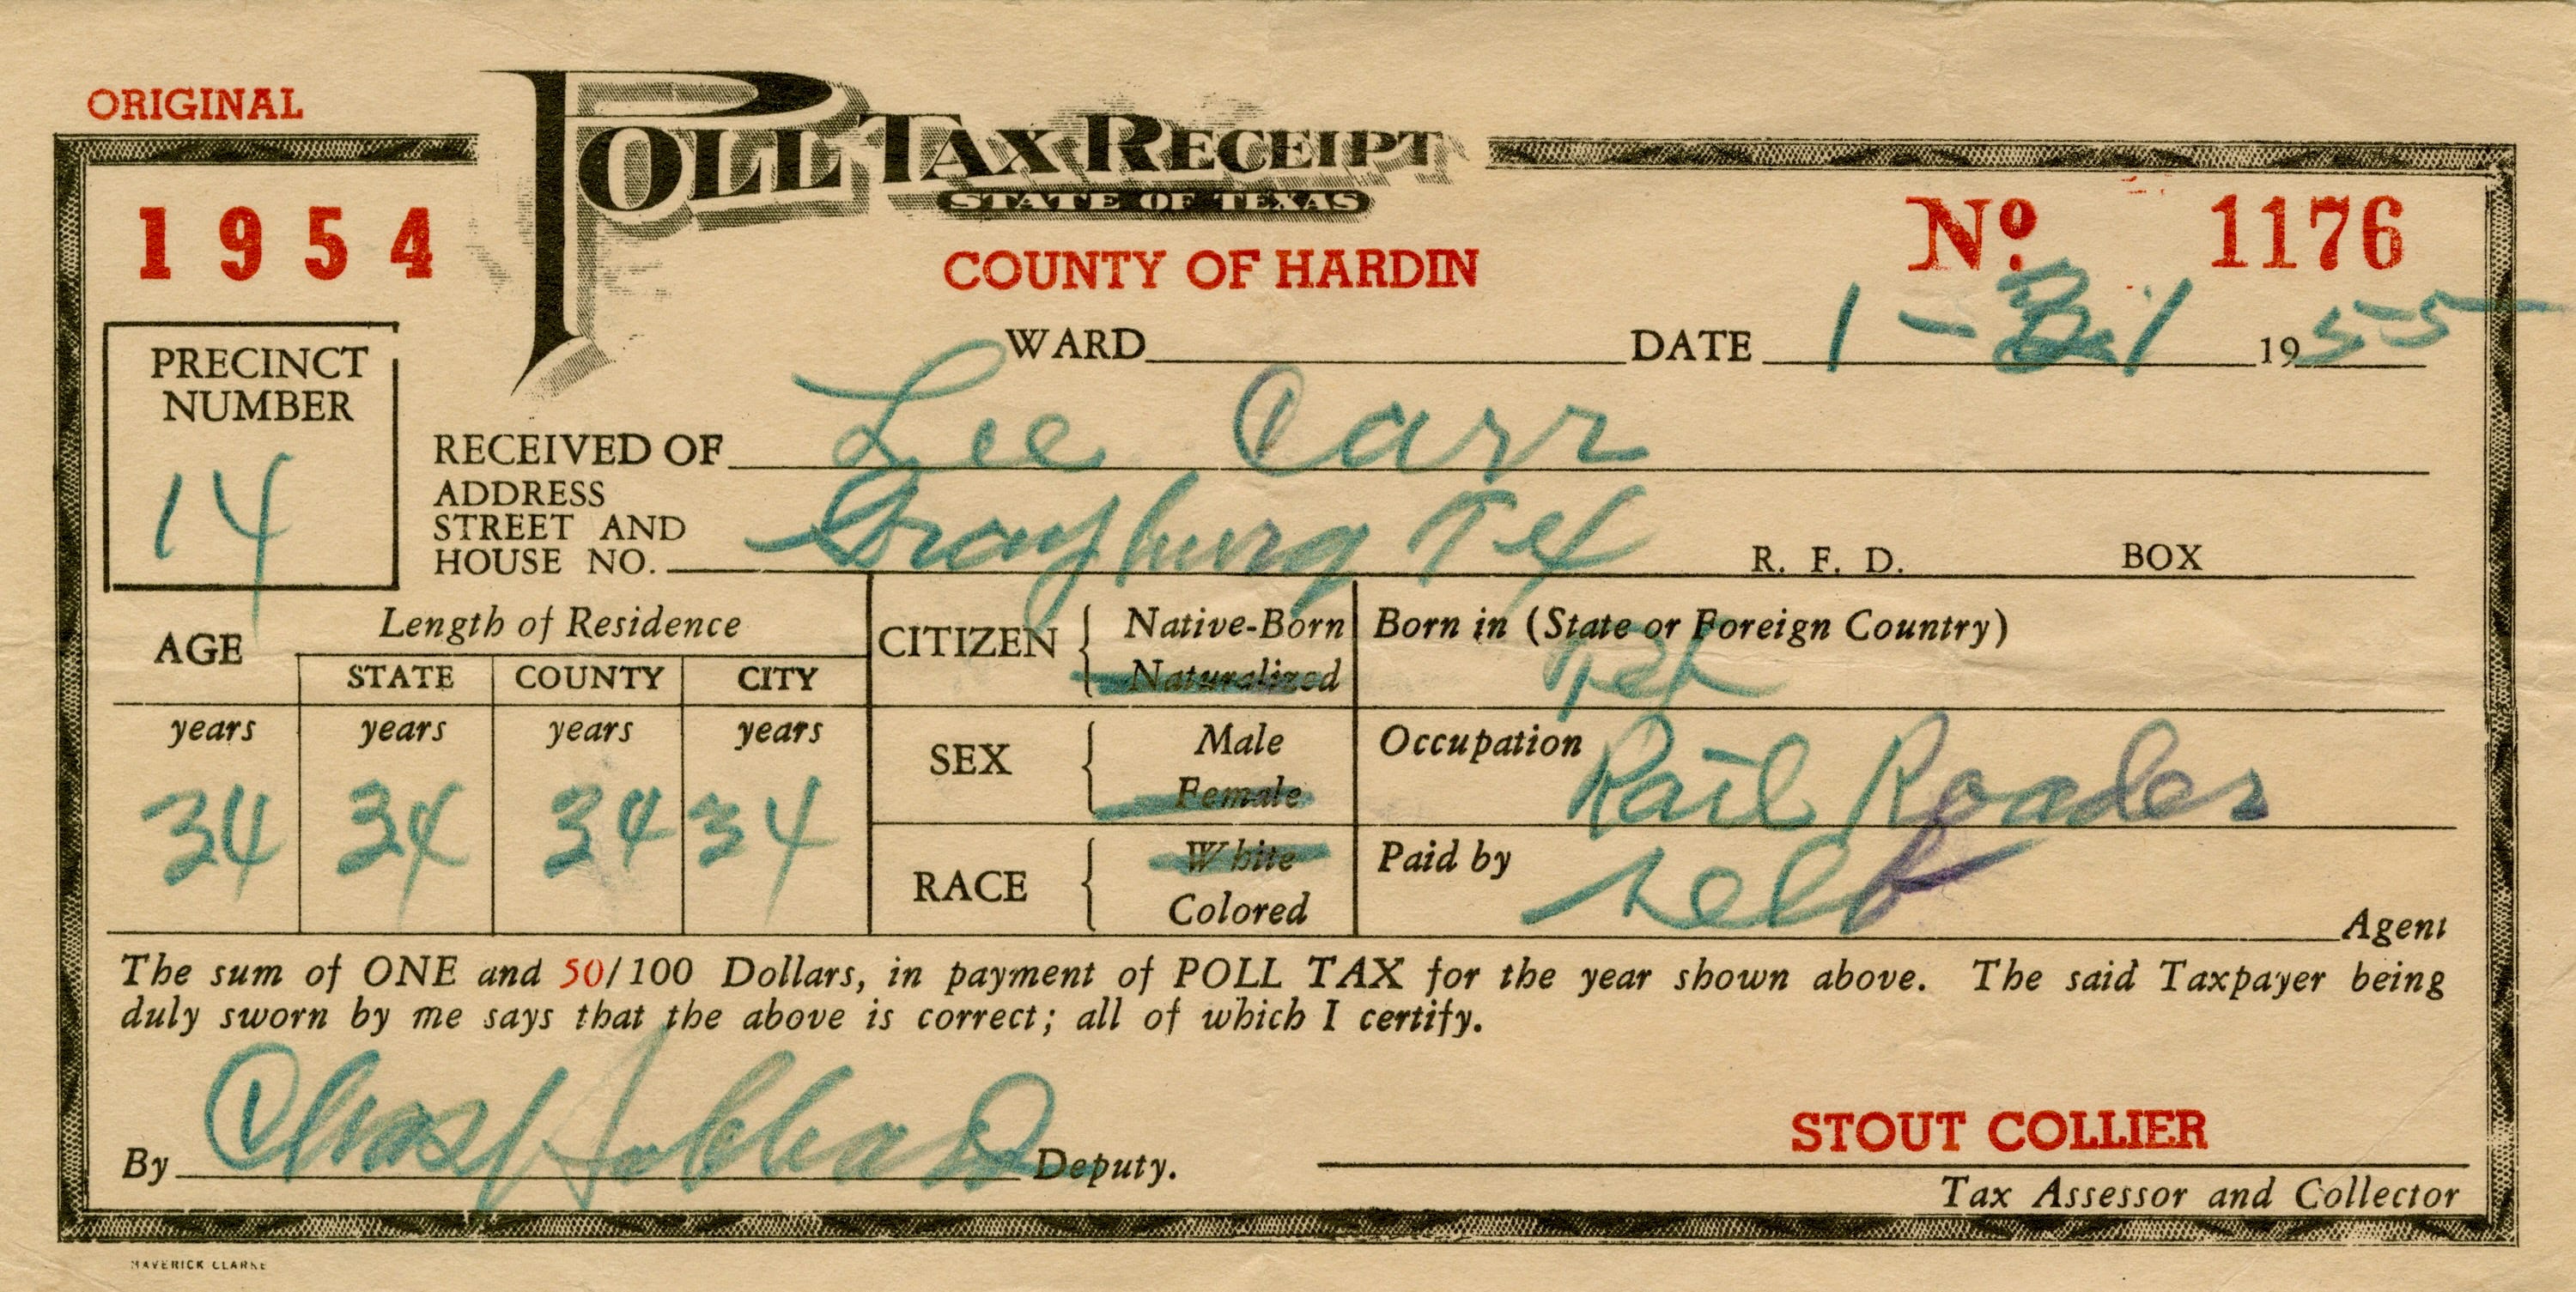 ORIGINAL
POLL TAX RECEIPT
STATE OF TEXAS
1954
COUNTY OF HARDIN
No 1176
WARD DATE 1 - 31 1955
PRECINCT NUMBER
14
RECEIVED OF Lee Carr
ADDRESS
STREET AND
HOUSE NO. Grayburg Tex R. F. D. BOX
AGE
Length of Residence
STATE COUNTY CITY
years years years years
34 34 34 34
CITIZEN { Native-Born
Naturalized
Born in (State or Foreign Country)
Tex
SEX { Male
Female
Occupation Rail Roader
RACE { White
Colored
Paid by self Agent
The sum of ONE and 50/100 Dollars, in payment of POLL TAX for the year shown above. The said Taxpayer being
duly sworn by me says that the above is correct; all of which I certify.
By Chas Deputy.
STOUT COLLIER
Tax Assessor and Collector
MAVERICK CLARKE